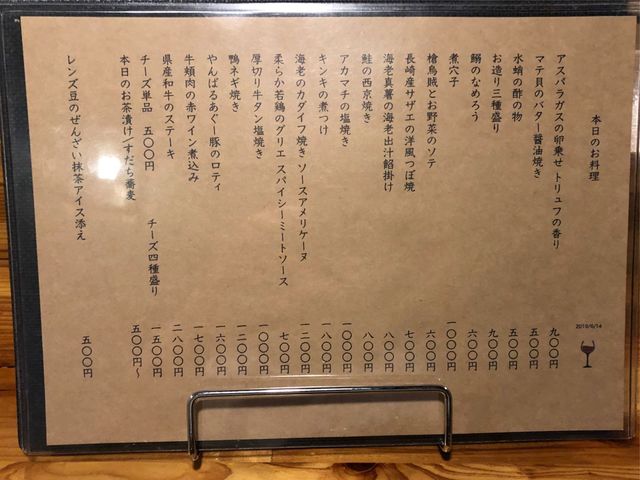 本日のお料理
2019/6/14
アスパラガスの卵乗せ トリュフの香り 九〇〇円
マテ貝のバター醤油焼き 五〇〇円
水蛸の酢の物 五〇〇円
お造り三種盛り 九〇〇円
鰯のなめろう 六〇〇円
煮穴子 一〇〇〇円
槍烏賊とお野菜のソテ 六〇〇円
長崎産サザエの洋風つぼ焼 七〇〇円
海老真薯の海老出汁餡掛け 八〇〇円
鮭の西京焼き 八〇〇円
アカマチの塩焼き 一〇〇〇円
キンキの煮つけ 一八〇〇円
海老のカダイフ焼き ソースアメリケーヌ 一二〇〇円
柔らか若鶏のグリエ スパイシーミートソース 七〇〇円
厚切り牛タン塩焼き 一〇〇〇円
鴨ネギ焼き 一二〇〇円
やんばるあぐー豚のロティ 一六〇〇円
牛頬肉の赤ワイン煮込み 一七〇〇円
県産和牛のステーキ 二八〇〇円
チーズ単品 五〇〇円 チーズ四種盛り 一五〇〇円
本日のお茶漬け/すだち蕎麦 五〇〇円〜
レンズ豆のぜんざい抹茶アイス添え 五〇〇円